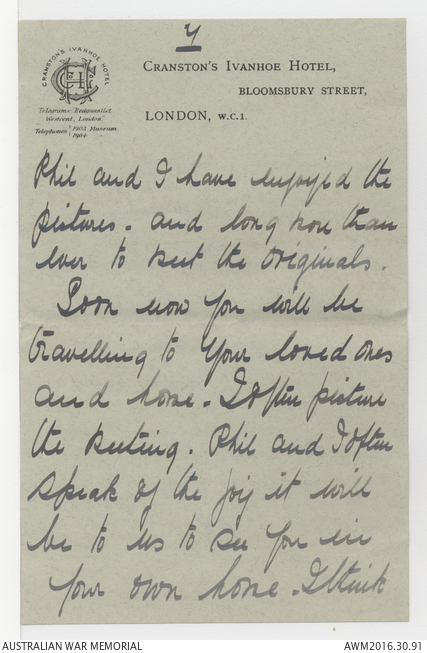 4
CRANSTON'S IVANHOE HOTEL
CRANSTON'S IVANHOE HOTEL,
BLOOMSBURY STREET,
LONDON, W.C.1.
Telegrams "Bedquestlet
Westcent, London."
Telephones 1903 Museum
1904
Phil and I have enjoyed the
pictures. and long more than
ever to meet the originals.
Soon now you will be
travelling to your loved ones
and home. I often picture
the meeting. Phil and I often
speak of the joy it will
be to us to see you in
your own home. I think
AUSTRALIAN WAR MEMORIAL
AWM2016.30.91